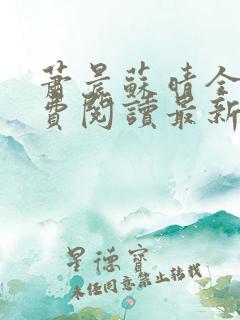 蕭晨蘇晴全
費閱讀最新
星德寶
未經同意禁止轉載